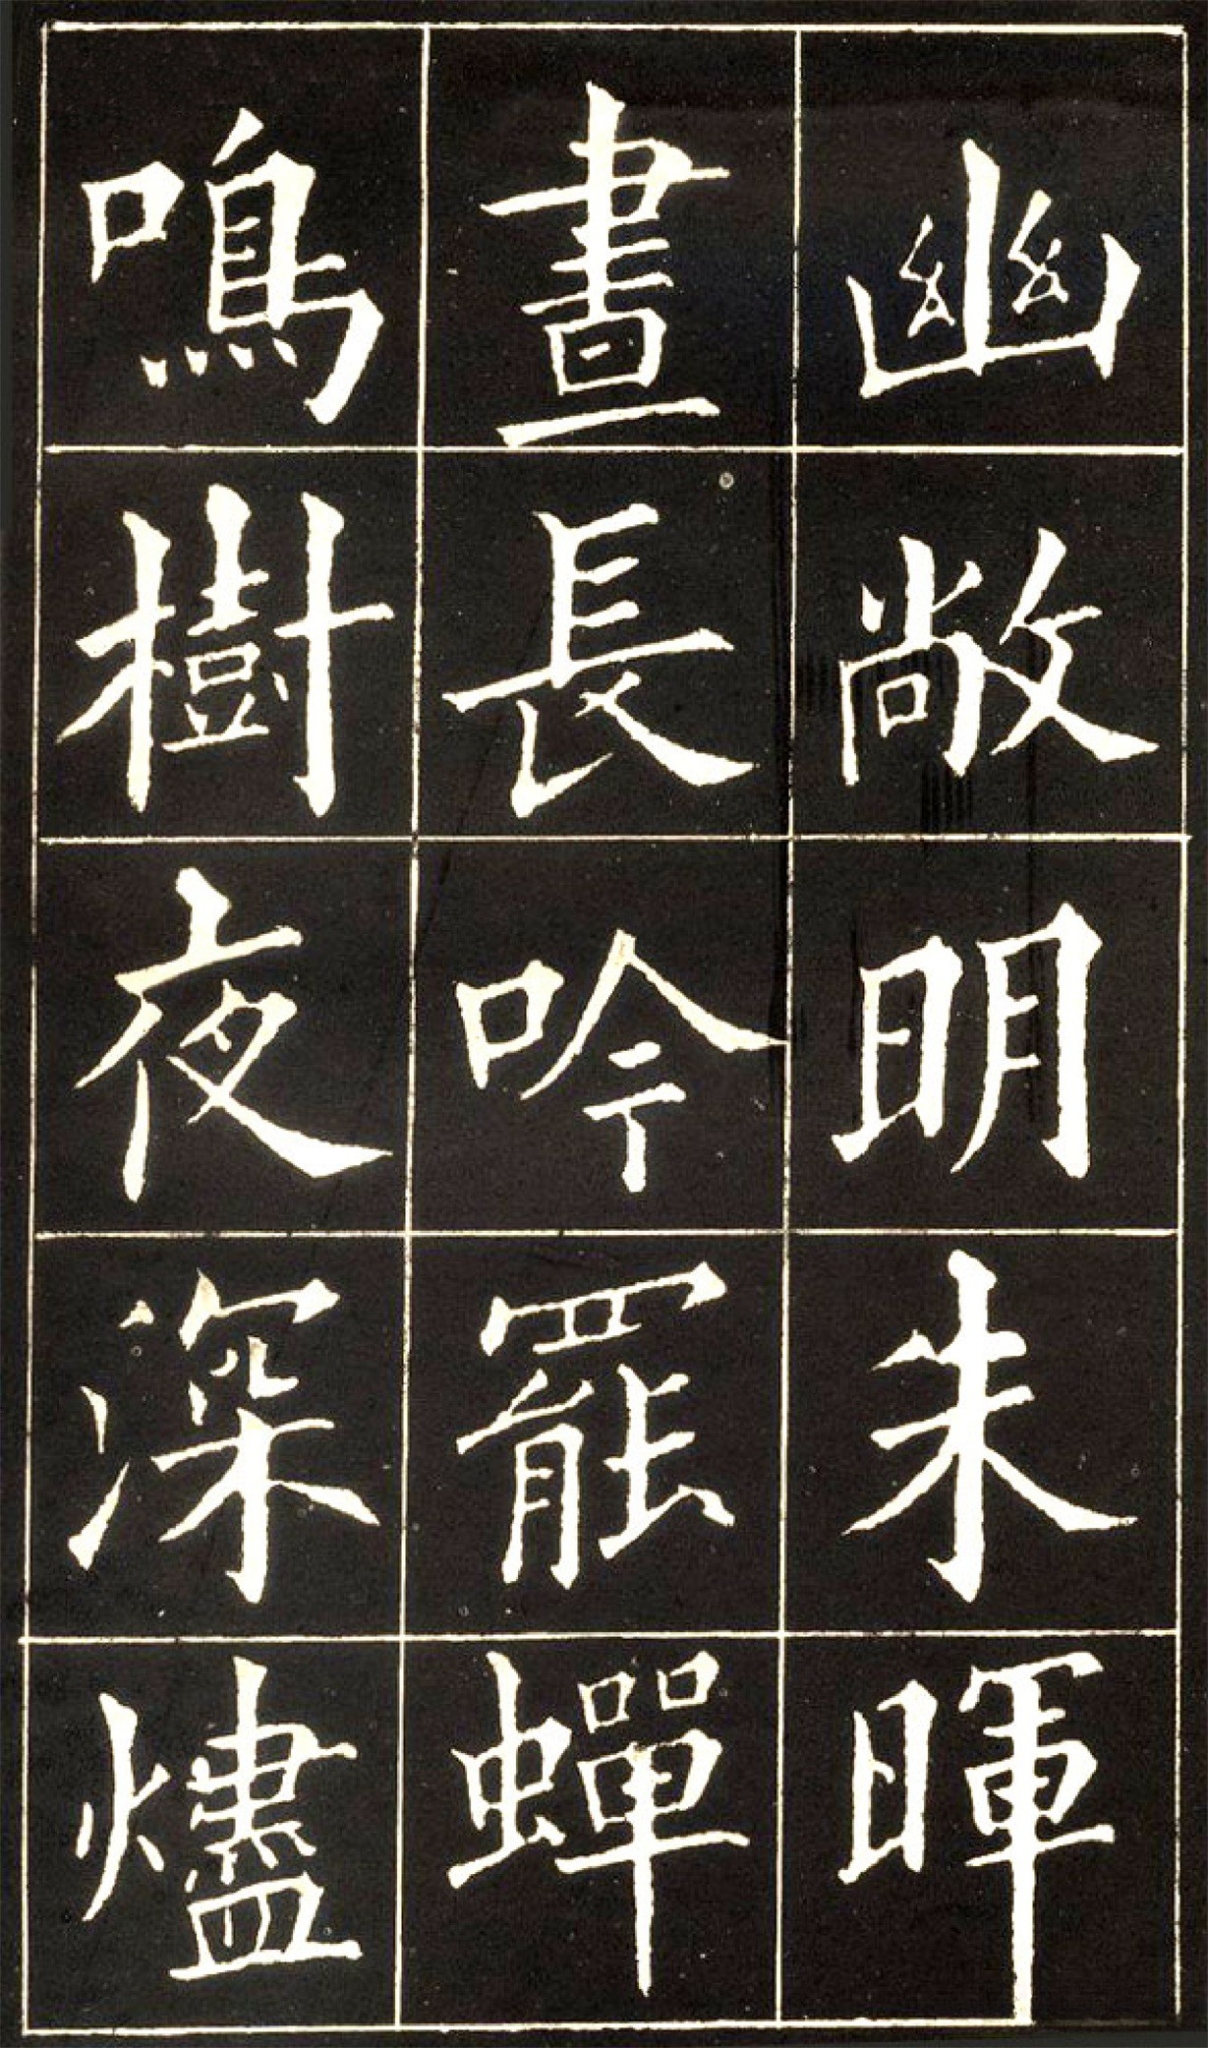 幽敞明朱暉
晝長吟罷蟬
鳴樹夜深燼